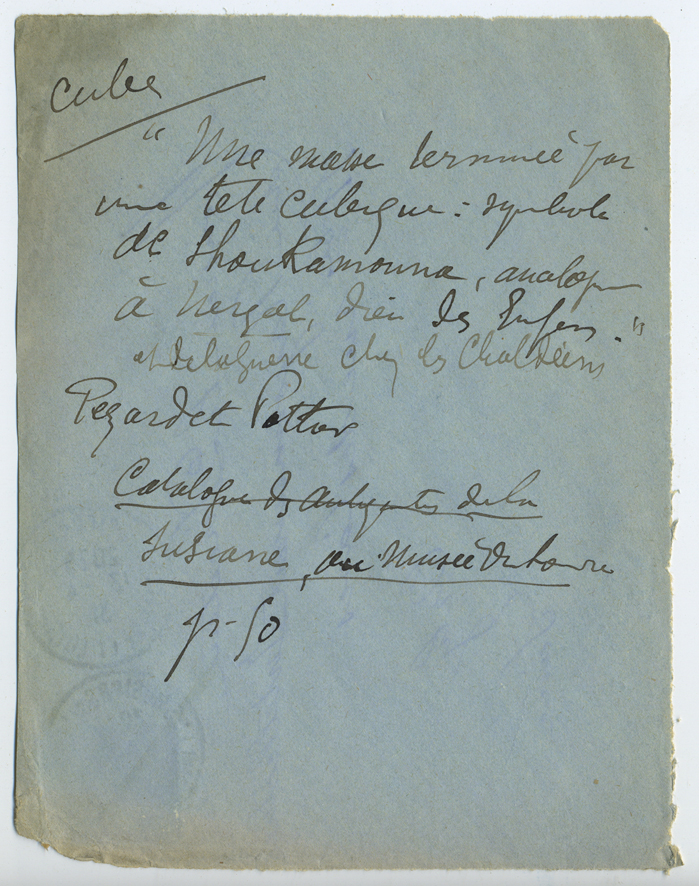 Cube
" Une masse terminée par
une tete cubique : symbole
de Shoukamouna, analogue
à Nergal, dieu des Enfers. "
et de la guerre chez les Chaldéens
Pezard et Pottier
Catalogue des antiquités de la
Susiane, au Musée du Louvre
p. 50